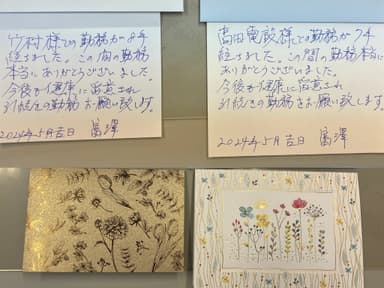 竹村様での勤務が8年
経ちました。この間の勤務
本当にありがとうございました。
今後も健康に留意され
引続きの勤務お願い致します。
2024年5月吉日 富澤
富田電設様での勤務が7年
経ちました。この間の勤務本当に
ありがとうございました。
今後も健康に留意され
引続きの勤務お願い致します。
2024年5月吉日 富澤